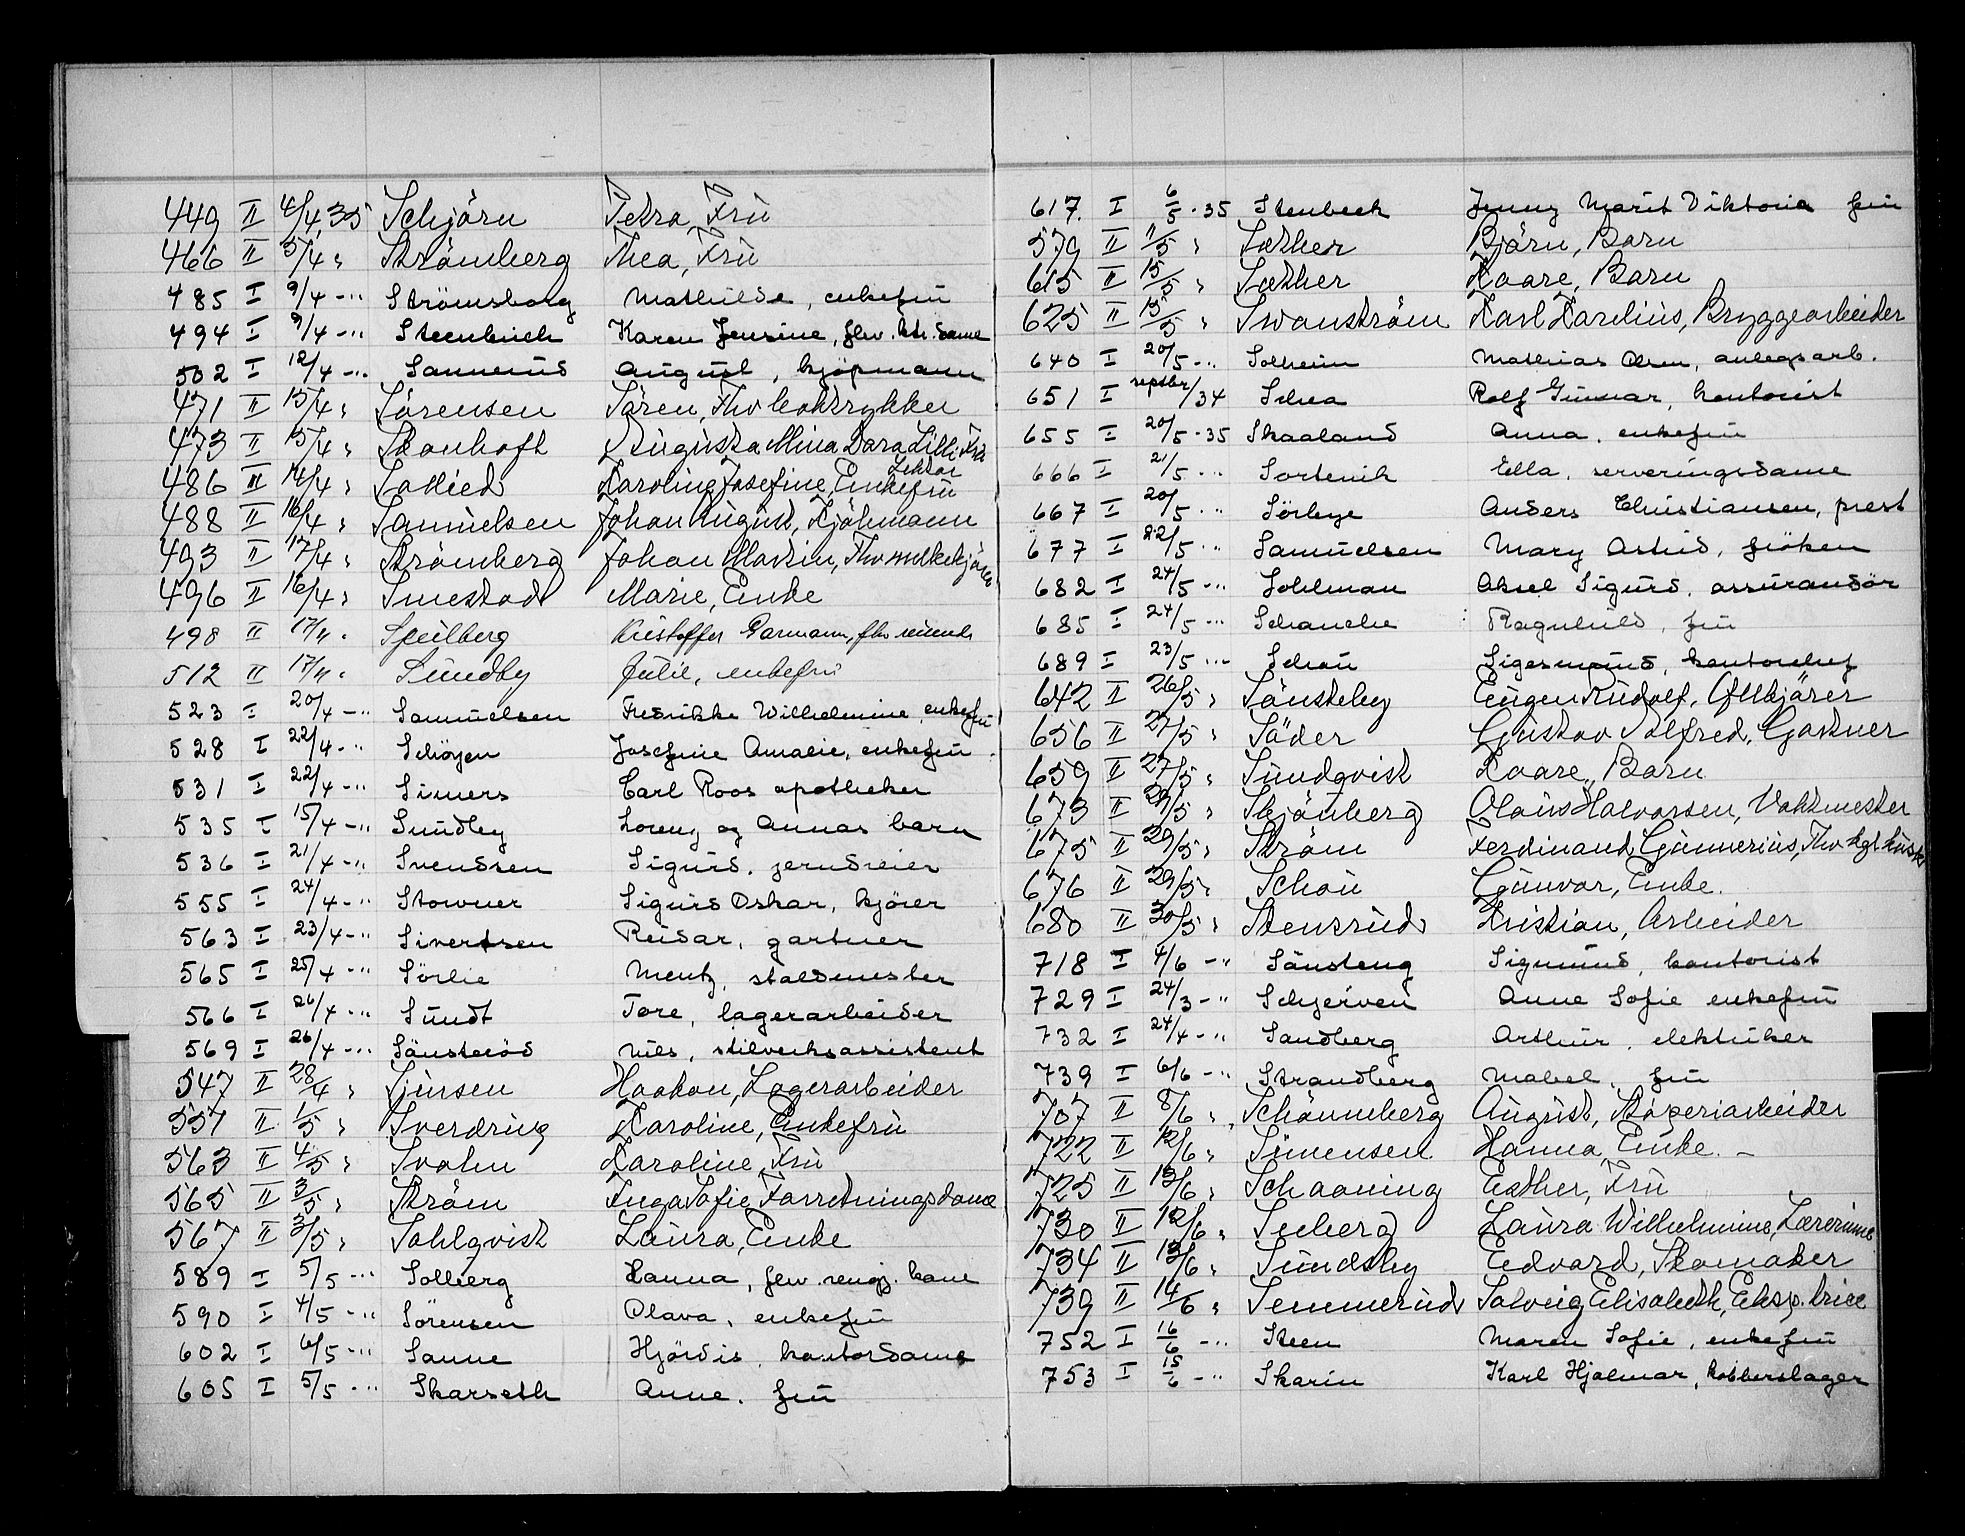 449 II 4/4 35 Schjörn Petra, Frü
466 II 5/4 " Strömberg Thea, Frü
485 I 9/4 -" Strömsborg Mathilde, enkefrü
494 I 9/4 -" Steenbuch Karen Jensine, flv. ktr. dame
502 I 12/4 -" Sannerüd August, kjöpmann
471 II 15/4 " Sörensen Sören, Fhv boktrykker
473 II 15/4 " Skouhoft Augusta Mina Dora Lilli Frü
486 II 14/4 " Sollied Karoline Josefine, Enkefrü Lektor
488 II 16/4 " Samüelsen Johan August, Kjöhmann
493 II 17/4 " Strömberg Johan Martin, Fhv melkekjörer
496 II 16/4 " Smestad Marie, Enke
498 II 17/4 " Speilberg Kristoffer Garmann, fhv
512 II 17/4 " Sündby Julie, enkefrü
523 I 20/4 -" Samüelsen Fredrikke Wilhelmine, enkefrü
528 I 22/4 -" Schöyen Josefine Amalie, enkefrü
531 I 22/4 -" Simers Carl Roos apotheker
535 I 15/4 -" Sündby Lorenz og Annas barn
536 I 21/4 -" Svendsen Sigurd, jerndreier
555 I 24/4 -" Stowner Sigurd Oskar, kjörer
563 I 23/4 -" Sivertsen Reidar, gartner
565 I 25/4 -" Sörlie Mentz, staldmester
566 I 26/4 -" Sündt Tore, lagerarbeider
569 I 26/4 -" Sönsteröd Nils, stilverksassistent
547 II 28/4 " Sjursen Haakon, Lagerarbeider
551 II 1/5 " Sverdrüg Karoline, Enkefrü
563 II 4/5 " Svahn Karoline, Frü
565 II 3/5 " Ström Inga Sofie, Forretningsdame
567 II 3/5 " Sahlqvist Laüra, Enke
589 I 5/5 -" Solberg Hanna, flv. rengj. kone
590 I 4/5 -" Sörensen Olava, enkefrü
602 I 6/5 -" Sanne Hjördis, kontordame
605 I 5/5 -" Skarseth Anne, frü
617. I 6/5 - 35 Stenbeck Jenny Marit Viktoria frü
579 II 11/5 " Sæther Björn, Barn
615 II 15/5 " Sæther Kaare, Barn
625 II 15/5 " Svanström Karl Karelius, Bryggearbeider
640 I 20/5 -" Solheim Mathias Olsen, anlegsarb.
651 I septbr/34 Schea Rolf Gunnar, kontorist
655 I 20/5 - 35 Skaaland Anna, enkefrü
666 I 21/5 -" Sortevik Ella, serveringsdame
667 I 20/5 -" Sörbye Anders Christiansen, prest
677 I 22/5 -" Samuelsen Mary Astrid, fröken
682 I 24/5 -" Sohlman Aksel Sigurd, assurandör
685 I 24/5 -" Schanche Ragnhild, frü
689 I 23/5 -" Schou Sigesmund, kontorchef
642 II 26/5 " Sönsteby Eügen Rüdolf, Avkjörer
656 II 27/5 " Söder Güstav Alfred, Gartner
659 II 27/5 " Sündqvist Kaare, Barn
673 II 29/5 " Skjönberg Olaus Halvorsen, Vaktmester
675 II 29/5 " Ström Ferdinand Günnerius, Fhv Kgl.
676 II 29/5 " Schou Günvor, Enke.
680 II 30/5 " Stensrüd Kristian, Arbeider
718 I 4/6 -" Sönsteng Sigmund, kontorist
729 I 24/3 -" Schjerven Anne Sofie enkefrü
732 I 24/4 -" Sandberg Arthur, elektriker
739 I 6/6 -" Strandberg Mabel, frü
707 II 8/6 " Schönneberg August, Støperiarbeider
722 II 12/6 " Simensen Hanna, Enke. -
725 II 13/6 " Schaaning Esther, Frü
730 II 12/6 " Seeberg Laura Wilhelmine, Lærerinne
734 II 13/6 " Sündsby Edvard, Skomaker
739 II 14/6 " Semmerüd Solveig Elisabeth, Eksp. trice
752 I 16/6 -" Steen Maren Sofie, enkefrü
753 I 15/6 -" Skarin Karl Hjalmar, kobberslager